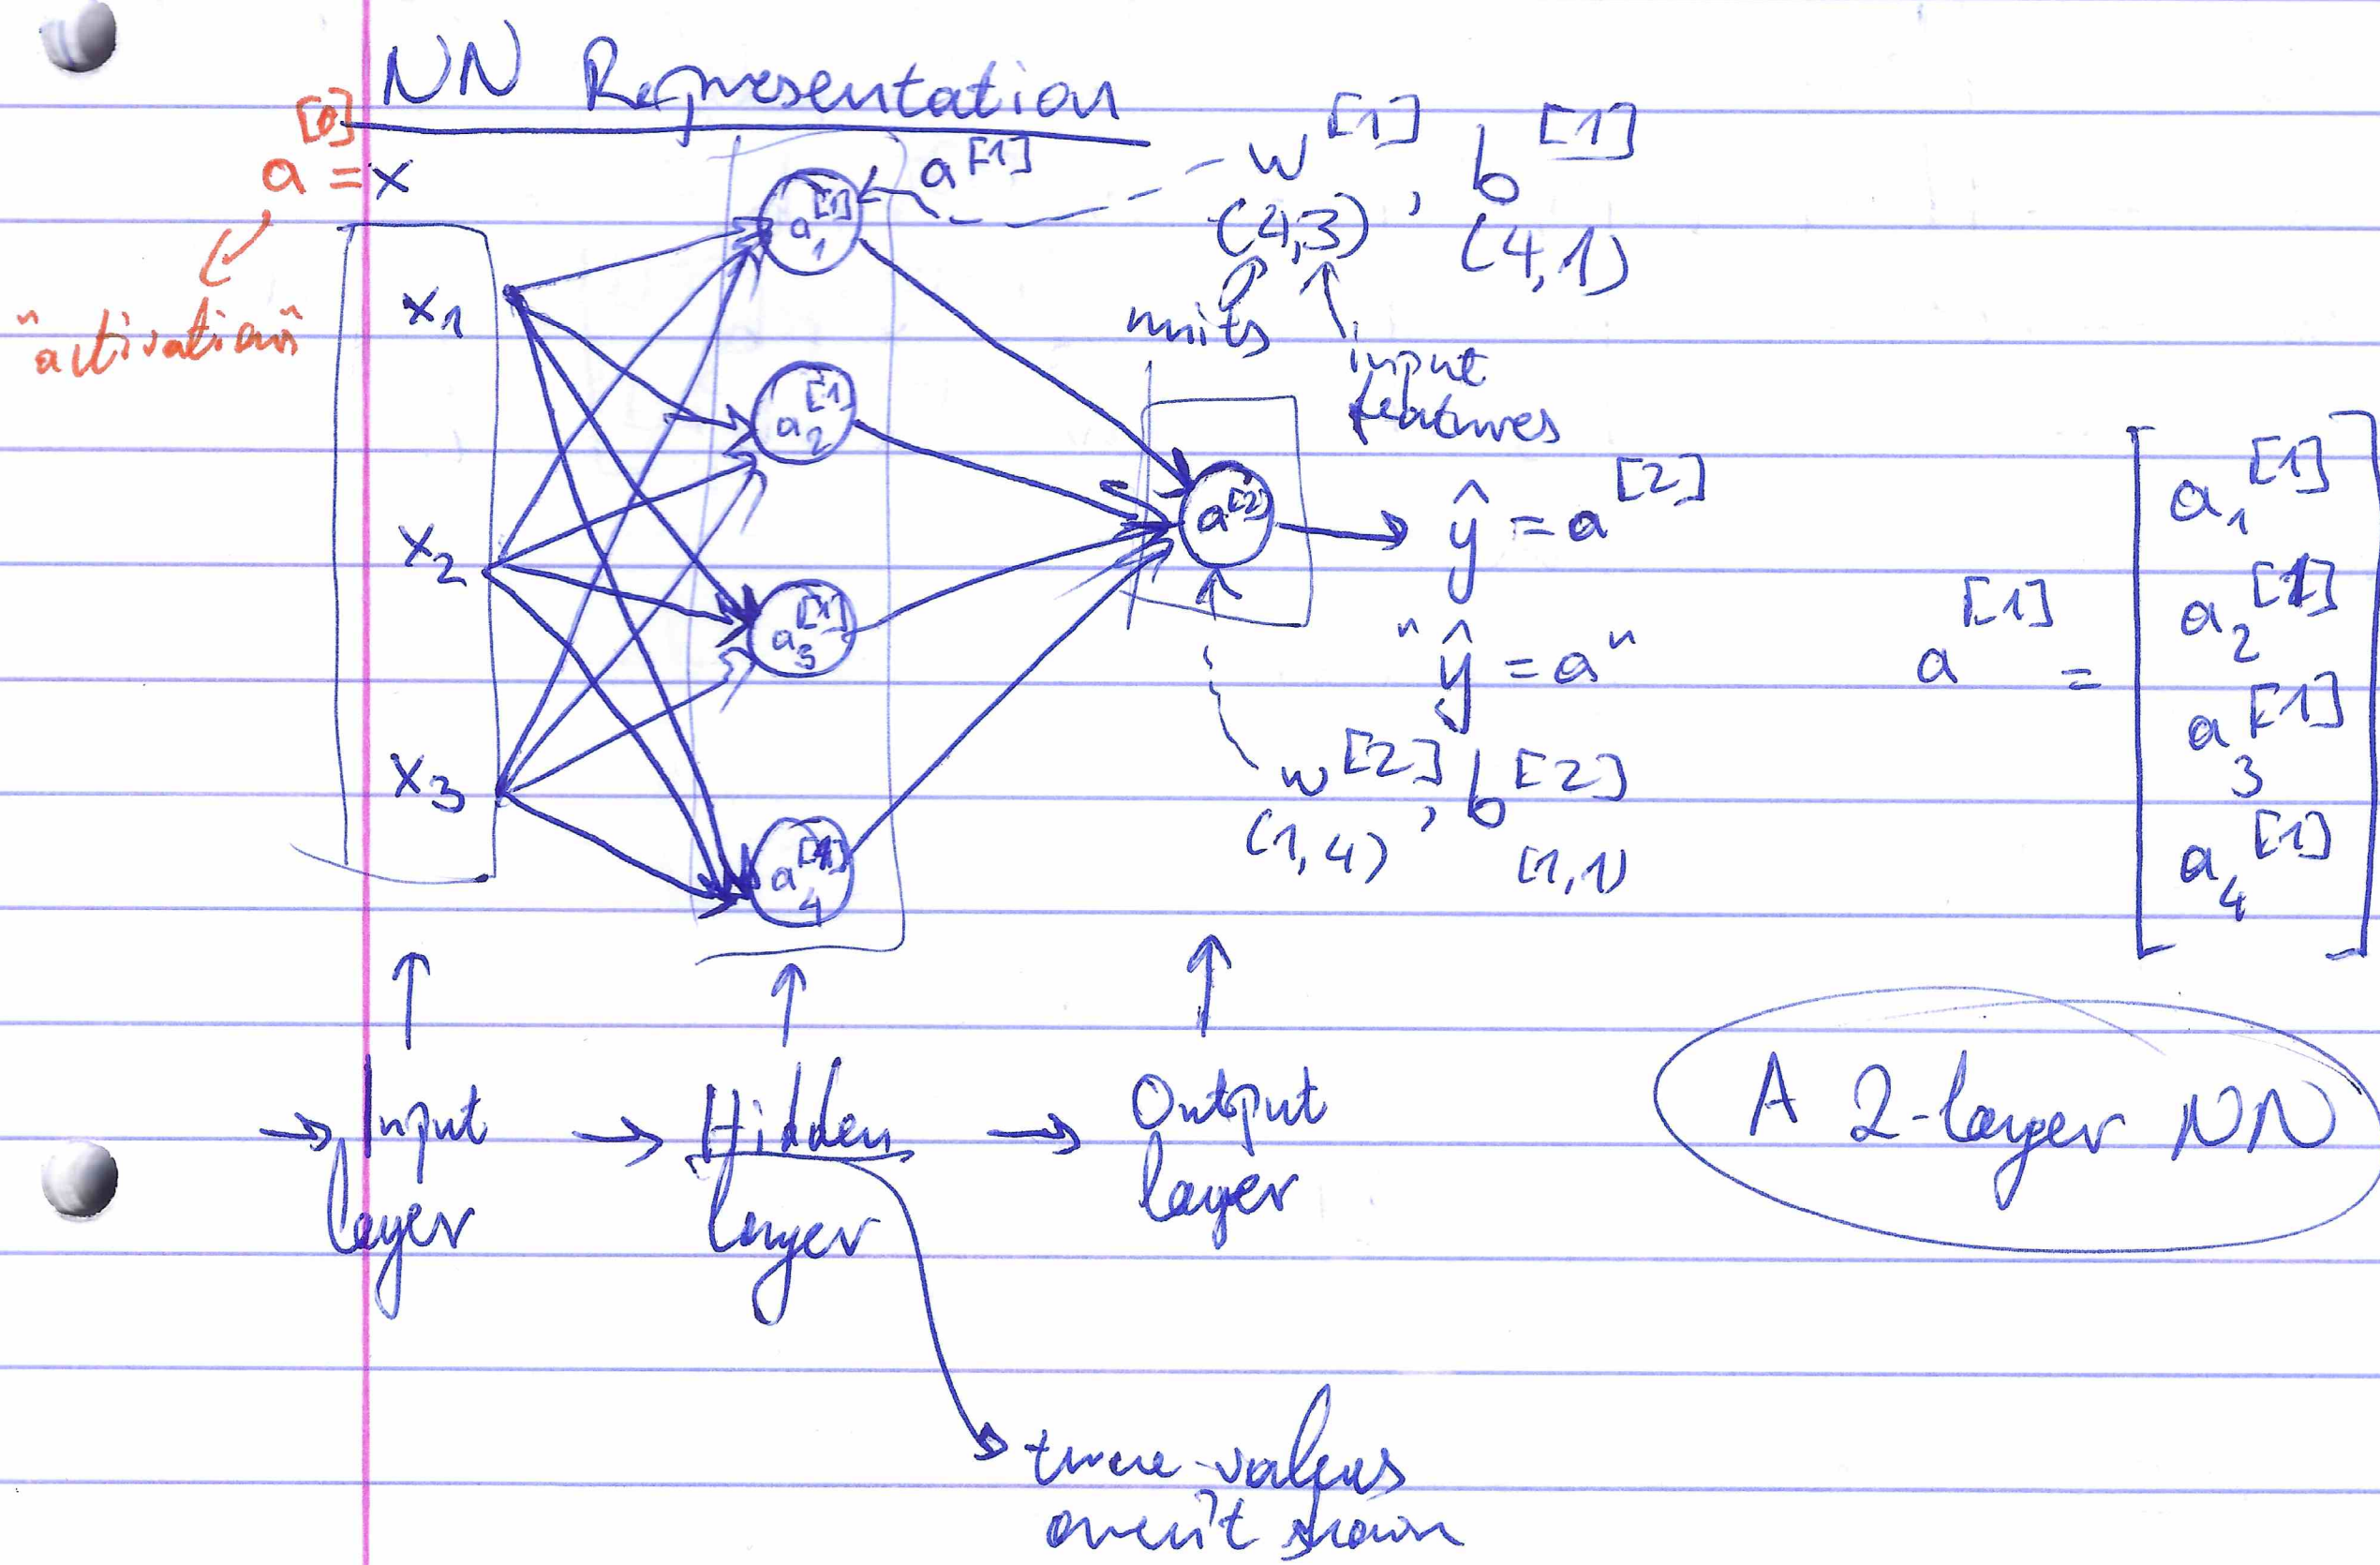 NN Representation
a^[0] = x
"activation"
x_1
x_2
x_3
a_1^[1]
a_2^[1]
a_3^[1]
a_4^[1]
a^[1]
w^[1], b^[1]
(4,3) (4,1)
units
input
features
a^[2]
ŷ = a^[2]
"ŷ = a"
w^[2], b^[2]
(1,4) (1,1)
a^[1] =
a_1^[1]
a_2^[1]
a_3^[1]
a_4^[1]
→ Input → Hidden → Output
layer layer layer
A 2-layer NN
true values
aren't shown